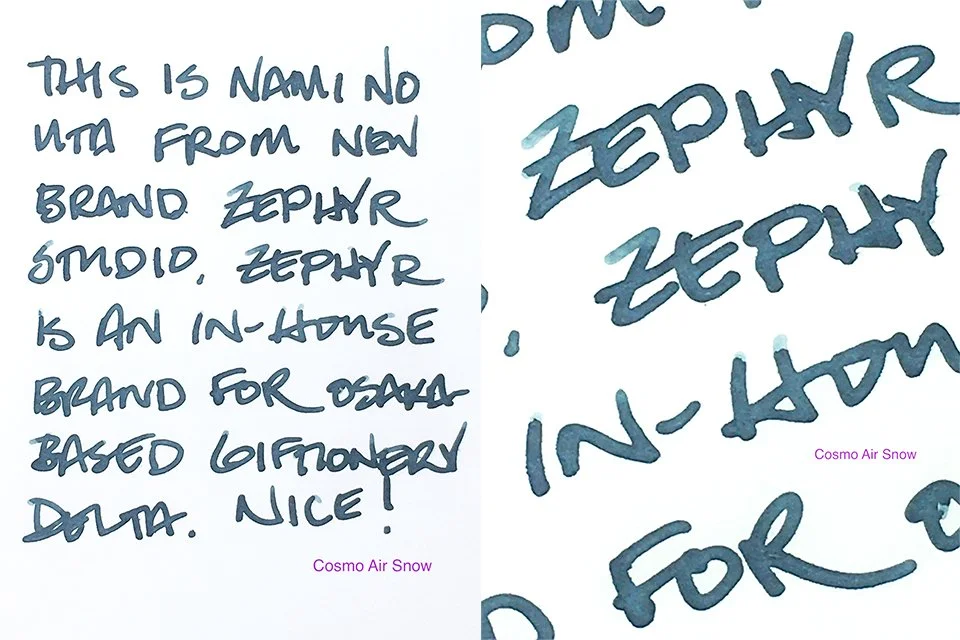 THIS IS NAMI NO
UTA FROM NEW
BRAND ZEPHYR
STUDIO. ZEPHYR
IS AN IN-HOUSE
BRAND FOR OSAKA-
BASED GIFTIONERY
DELTA. NICE!
Cosmo Air Snow
OM
ZEPHYR
. ZEPHY
IN-HOU
Cosmo Air Snow
D FOR O